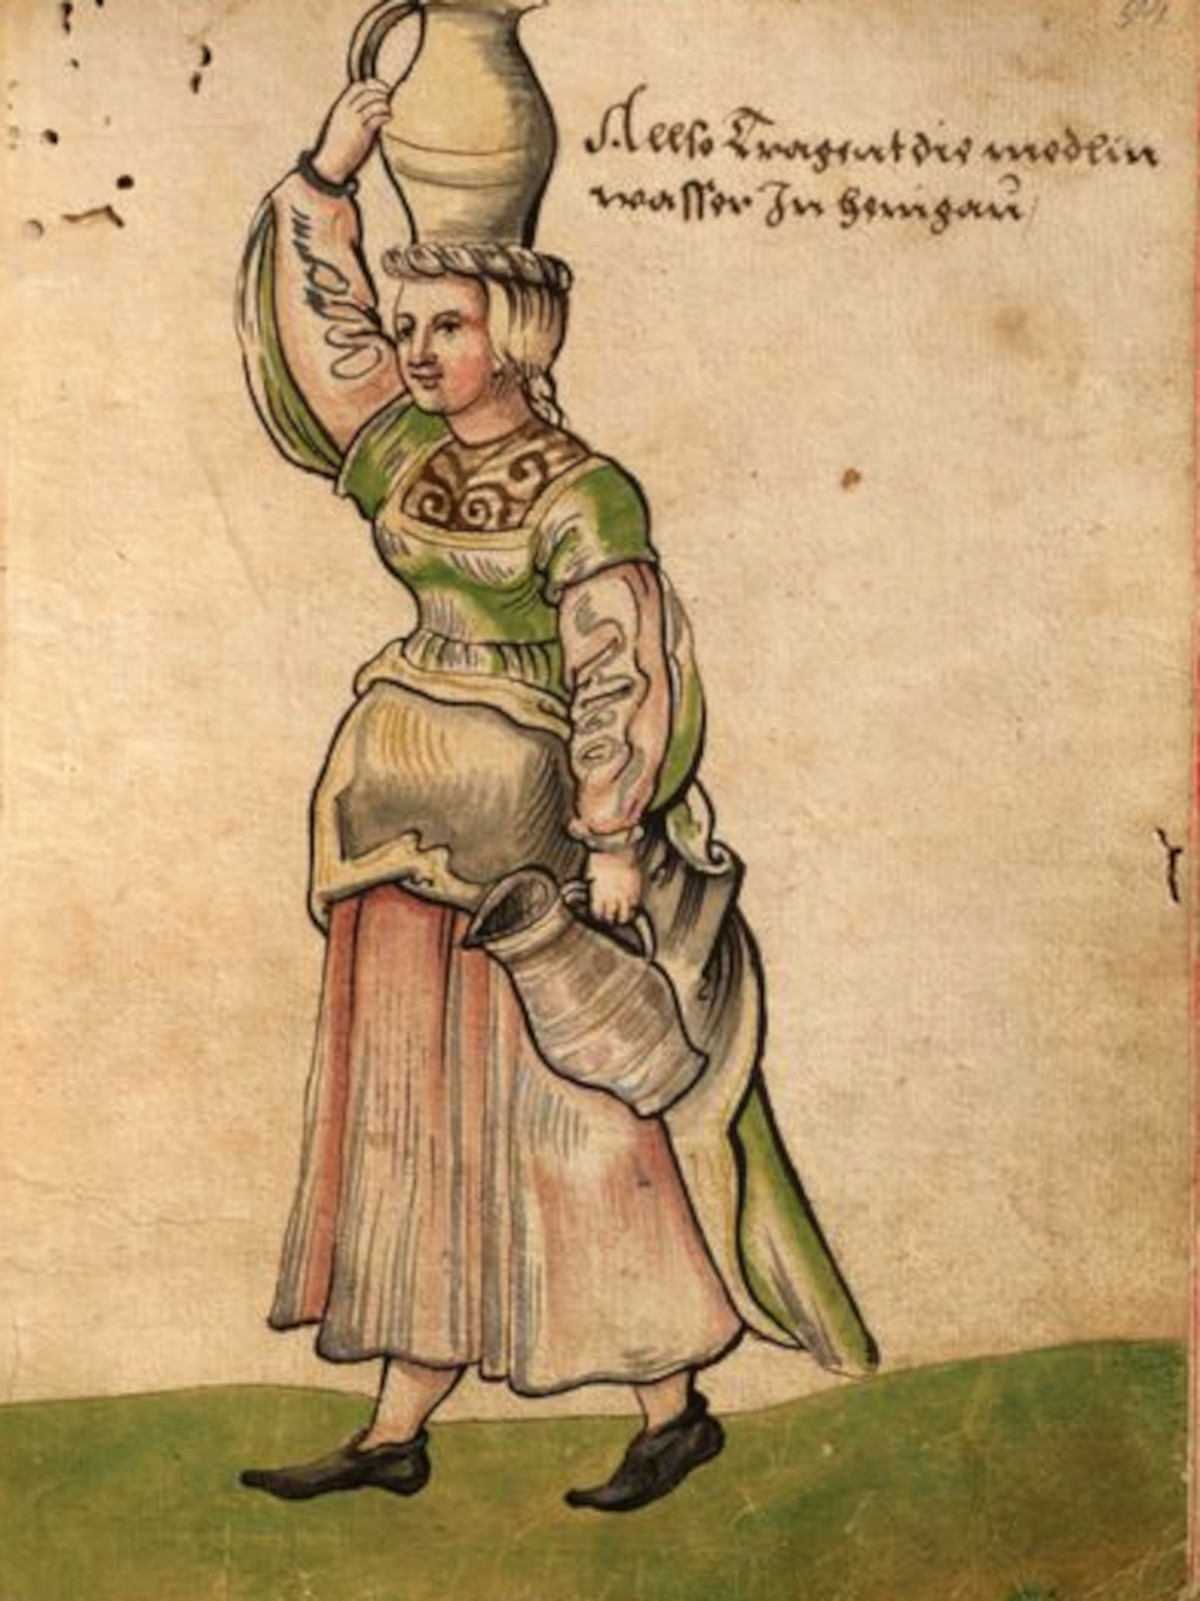 Allso Tragent die medlin
wasser In henigaü